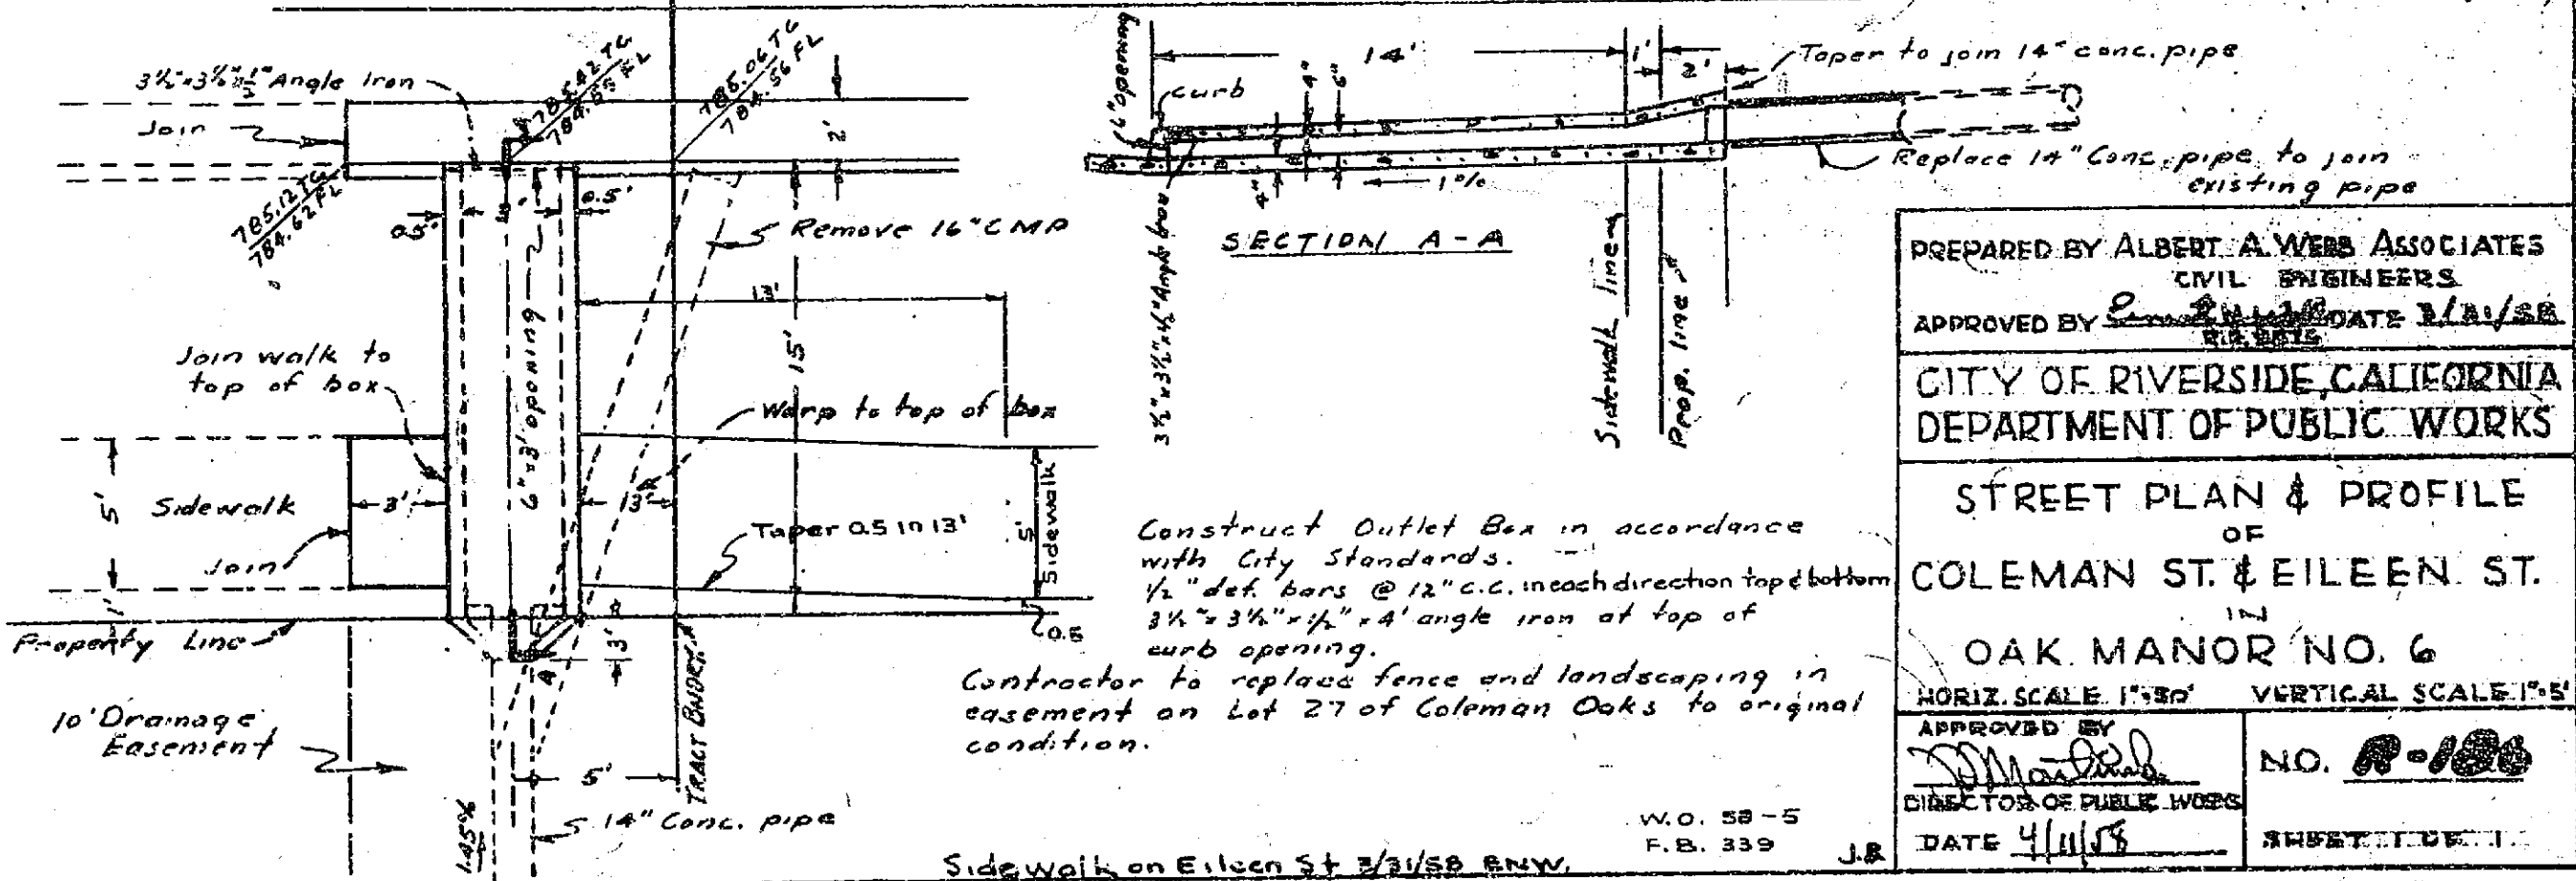 3½"x3½"x½" Angle Iron
Join
785.42 TG
785.06 TG
784.56 FL
2'
785.12 TG
784.62 FL
0.5'
0.5'
Remove 16" CMP
13'
15'
6"x3' opening
Join walk to
top of box
Warp to top of box
5'
Sidewalk
3'
13'
Join
Taper 0.5 in 13'
5'
Sidewalk
1'
Property Line
0.5
3'
A
10' Drainage
Easement
5'
TRACT BNDRY.
1.45%
14" Conc. pipe
6" opening
curb
14'
4"
6"
1'
2'
Taper to join 14" conc. pipe
4"
1%
Replace 14" Conc. pipe to join
existing pipe
SECTION A-A
3½"x3½"x½" Angle Iron
Sidewalk line
Prop. line
Construct Outlet Box in accordance
with City Standards.
½" def. bars @ 12" c.c. in each direction top & bottom
3½"x3½"x½"x4' angle iron at top of
curb opening.
Contractor to replace fence and landscaping in
easement on Lot 27 of Coleman Oaks to original
condition.
W.O. 58-5
F.B. 339
J.B.
Sidewalk on Eileen St 3/31/58 BNW.
PREPARED BY ALBERT A. WEBB ASSOCIATES
CIVIL ENGINEERS
APPROVED BY DATE 3/31/58
CITY OF RIVERSIDE, CALIFORNIA
DEPARTMENT OF PUBLIC WORKS
STREET PLAN & PROFILE
OF
COLEMAN ST. & EILEEN ST.
IN
OAK MANOR NO. 6
HORIZ. SCALE 1"=50' VERTICAL SCALE 1"=5'
APPROVED BY
DIRECTOR OF PUBLIC WORKS
DATE 4/11/58
NO. R-186
SHEET 1 OF 1